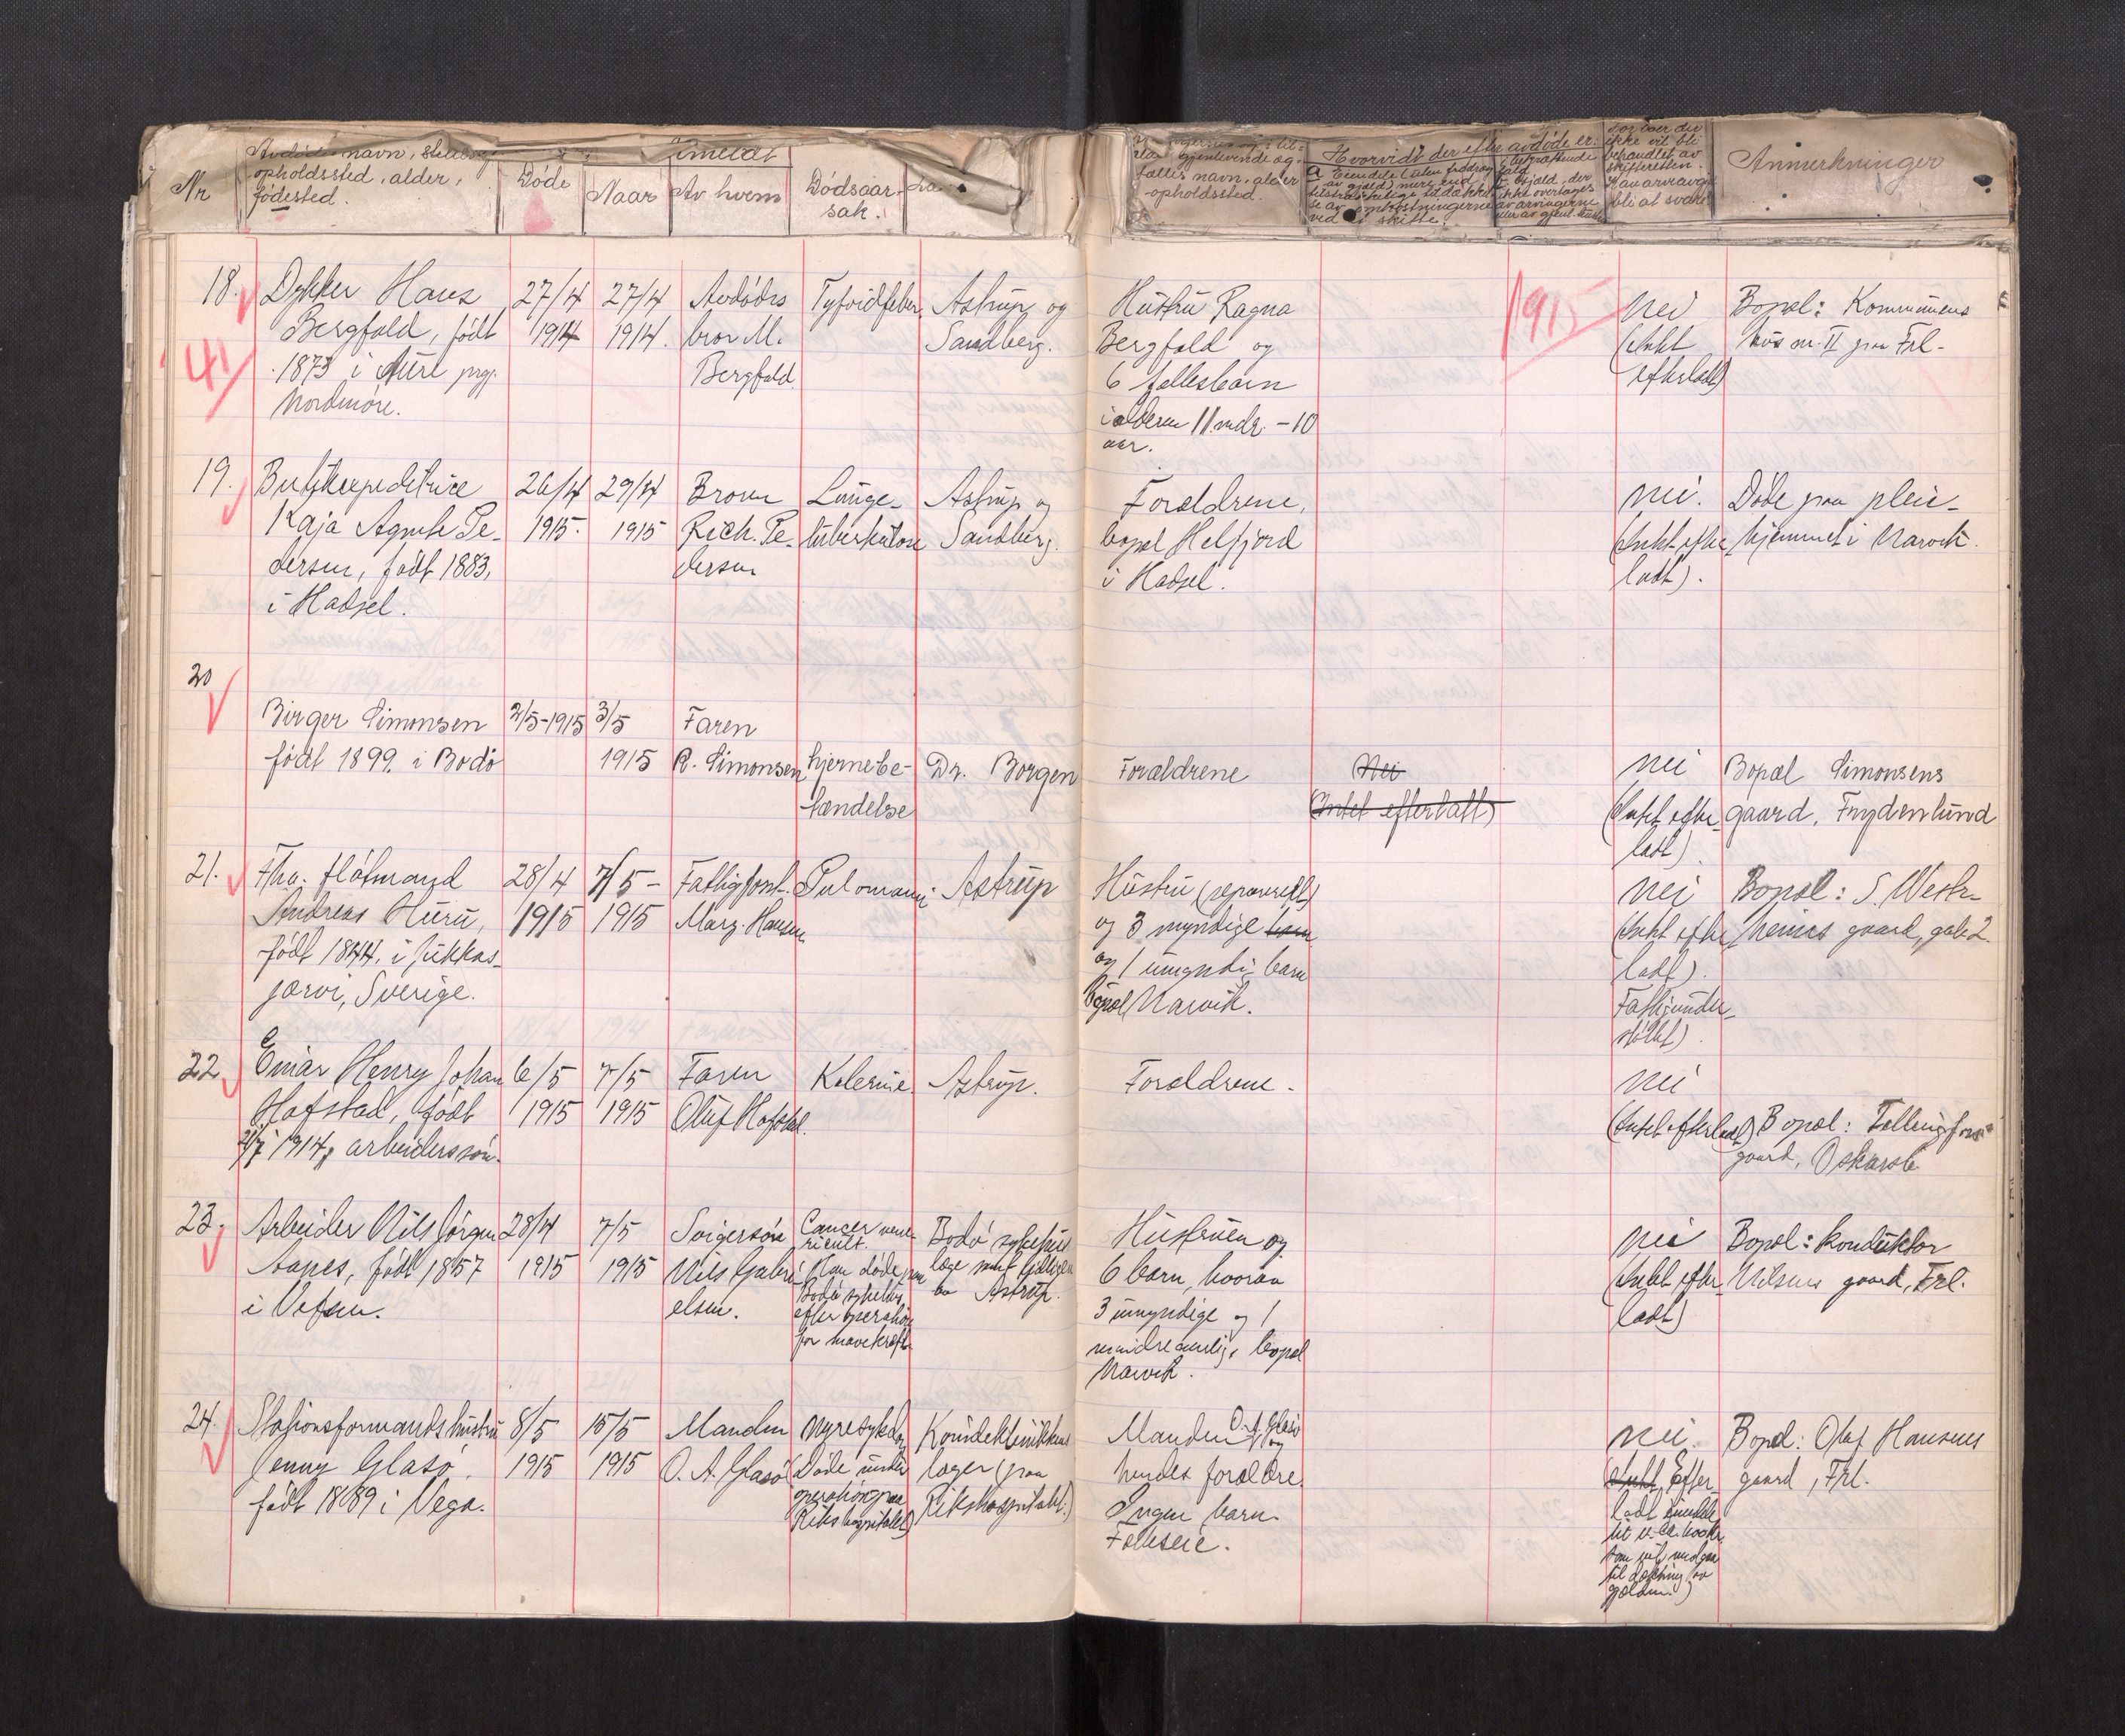 Nr
Avdødes navn, stilling
opholdssted, alder,
fødested.
Døde
Anmeldt
Naar
Av hvem
Dødsaar-
sak.
gjenlevende æg-
tefælles navn, alder
opholdssted.
Hvorvidt der efter avdøde er:
Anmerkninger
18.
41
Dykker Hans
Bergfald, født
1873 i Aure prg.
Nordmøre.
27/4
1914
27/4
1914.
Avdødes
bror M.
Bergfald.
Tyfoidfeber.
Astrup og
Sandberg.
Hustru Ragna
Bergfald og
6 fællesbarn
i alderen 11 mdr. - 10
aar.
1915
nei
(Intet
efterladt)
Bopæl: Kommunens
hus nr. II paa Frl.
19.
Butikexpeditrice
Kaja Agnete Pe-
dersen, født 1883,
i Hadsel.
26/4
1915.
29/4
1915
Broren
Rich. Pe-
dersen
Lunge-
tuberkulose
Astrup og
Sandberg.
Forældrene,
bopæl Melfjord
i Hadsel.
nei.
(Intet efter-
ladt).
Døde paa pleie-
hjemmet i Narvik.
20
Birger Simonsen
født 1899. i Bodø
2/5-1915
3/5
1915
Faren
R. Simonsen
hjernebe-
tændelse
Dr. Borgen
Forældrene
Nei
(Intet efterlatt)
nei
(Intet efter-
ladt).
Bopæl Simonsens
gaard, Frydenlund
21.
Fhv. fløtmand
Andreas Huru,
født 1844. i Jukkas-
jærvi, Sverige.
28/4
1915
7/5-
1915
Fattigforst.
Marg. Hansen
Astrup
Hustru (separeret)
og 3 myndige barn
og 1 umyndig barn
bopæl Narvik.
nei
(Intet efter-
ladt).
Fattigunder-
støttet).
Bopæl: S. Westr-
heims gaard, gate 2.
22
Einar Henry Johan
Hofstad, født
1914, arbeiderssøn.
6/5
1915
7/5
1915
Faren
Oluf Hofstad.
Kolerine.
Astrup.
Forældrene.
nei
(Intet efterladt)
Bopæl: Tellingfors
gaard,
23.
Arbeider Nils Jørgen
Aanes, født 1857
i Vefsen.
28/4
1915
7/5
1915
Svigersøn
Nils Gabri-
elsen.
Cancer ven-
ricult.
(Han døde paa
Bodø sykehus
efter operation
for mavekræft.
Bodø sykehus
læge samt tidligere
av Astrup.
Hustruen og
6 barn, hvorav
3 umyndige og 1
mindreaarig, bopæl
Narvik.
nei
(Intet efter-
ladt)
Bopæl: konduktør
Nilsens gaard, Frl.
24.
Stasjonsformands hustru
Jenny Glasø,
født 1889 i Vega.
8/5
1915
15/5
1915
Manden
O. A. Glasø
Nyresykdom
(Døde under
operation paa
Rikshospitalet)
Kvindeklinikkens
læger (paa
Rikshospitalet.)
Manden O. A. Glasø
og
hendes forældre.
Ingen barn.
Fælleseie.
nei.
(Intet Efter-
ladt eiendele
som vil medgaa
til dækning av
gjælden.)
Bopæl: Olaf Hansens
gaard, Frl.